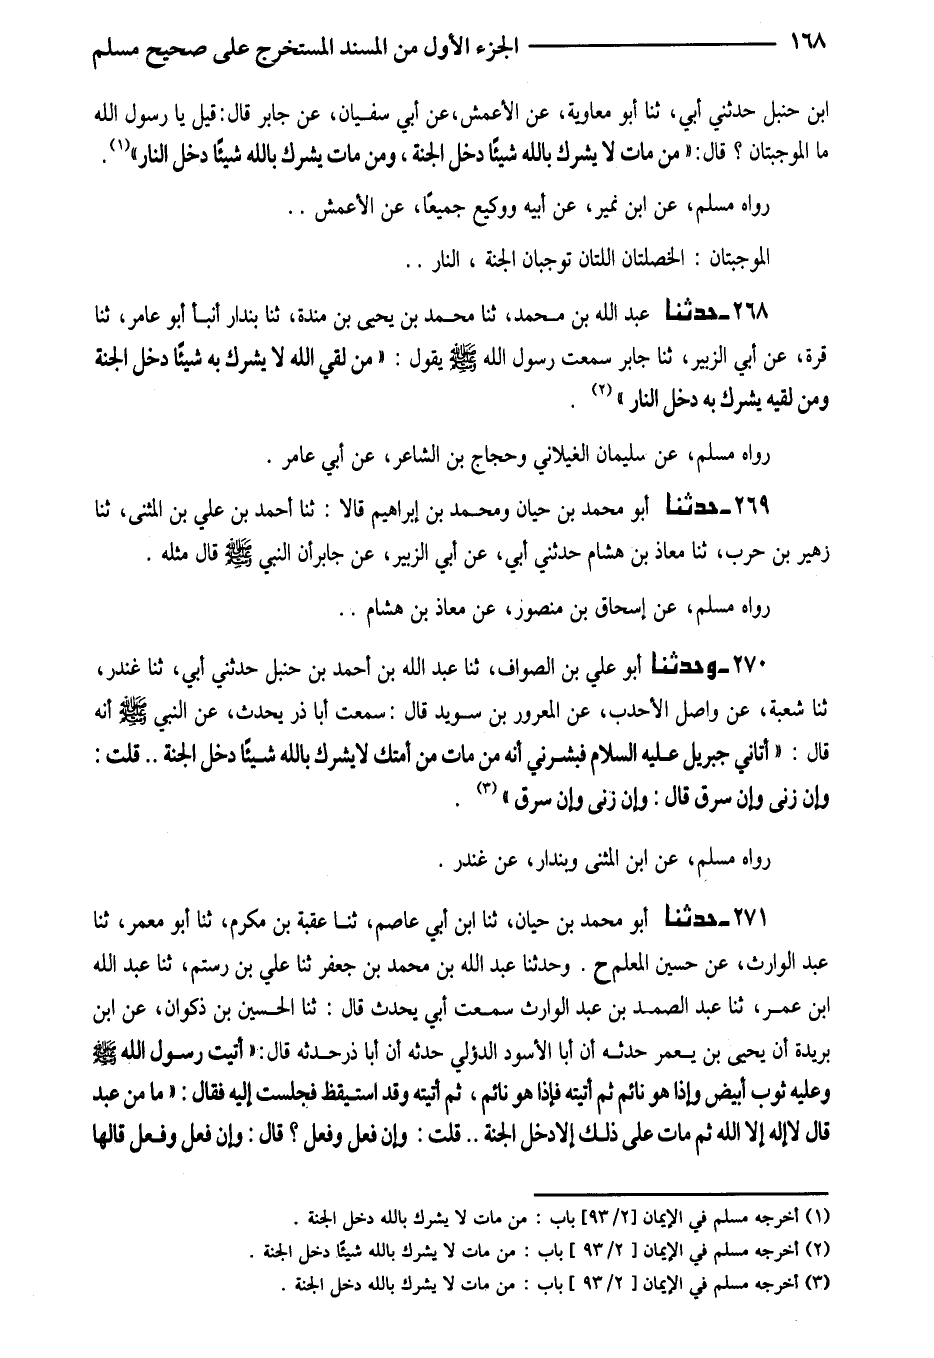 ١٦٨ ——— الجزء الأول من المسند المستخرج على صحيح مسلم
ابن حنبل حدثني أبي، ثنا أبو معاوية، عن الأعمش، عن أبي سفيان، عن جابر قال: قيل يا رسول الله
ما الموجبتان ؟ قال: « من مات لا يشرك بالله شيئًا دخل الجنة ، ومن مات يشرك بالله شيئًا دخل النار »(١).
رواه مسلم، عن ابن نمير، عن أبيه ووكيع جميعًا، عن الأعمش ..
الموجبتان : الخصلتان اللتان توجبان الجنة ، النار ..
٢٦٨ـ حدثنا عبد الله بن محمد، ثنا محمد بن يحيى بن مندة، ثنا بندار أنبأ أبو عامر، ثنا
قرة، عن أبي الزبير، ثنا جابر سمعت رسول الله ﷺ يقول : « من لقي الله لا يشرك به شيئًا دخل الجنة
ومن لقيه يشرك به دخل النار »(٢) .
رواه مسلم، عن سليمان الغيلاني وحجاج بن الشاعر، عن أبي عامر .
٢٦٩ـ حدثنا أبو محمد بن حيان ومحمد بن إبراهيم قالا : ثنا أحمد بن علي بن المثنى، ثنا
زهير بن حرب، ثنا معاذ بن هشام حدثني أبي، عن أبي الزبير، عن جابر أن النبي ﷺ قال مثله .
رواه مسلم، عن إسحاق بن منصور، عن معاذ بن هشام ..
٢٧٠ـ وحدثنا أبو علي بن الصواف، ثنا عبد الله بن أحمد بن حنبل حدثني أبي، ثنا غندر،
ثنا شعبة، عن واصل الأحدب، عن المعرور بن سويد قال : سمعت أبا ذر يحدث، عن النبي ﷺ أنه
قال : « أتاني جبريل عليه السلام فبشرني أنه من مات من أمتك لايشرك بالله شيئًا دخل الجنة .. قلت :
وإن زنى وإن سرق قال : وإن زنى وإن سرق »(٣) .
رواه مسلم، عن ابن المثنى وبندار، عن غندر .
٢٧١ـ حدثنا أبو محمد بن حيان، ثنا ابن أبي عاصم، ثنا عقبة بن مكرم، ثنا أبو معمر، ثنا
عبد الوارث، عن حسين المعلم ح . وحدثنا عبد الله بن محمد بن جعفر ثنا علي بن رستم، ثنا عبد الله
ابن عمر، ثنا عبد الصمد بن عبد الوارث سمعت أبي يحدث قال : ثنا الحسين بن ذكوان، عن ابن
بريدة أن يحيى بن يعمر حدثه أن أبا الأسود الدؤلي حدثه أن أبا ذر حدثه قال: « أتيت رسول الله ﷺ
وعليه ثوب أبيض وإذا هو نائم ثم أتيته فإذا هو نائم ، ثم أتيته وقد استيقظ فجلست إليه فقال : « ما من عبد
قال لاإله إلا الله ثم مات على ذلك إلا دخل الجنة .. قلت : وإن فعل وفعل ؟ قال : وإن فعل وفعل قالها
(١) أخرجه مسلم في الإيمان [٩٣/٢] باب : من مات لا يشرك بالله دخل الجنة .
(٢) أخرجه مسلم في الإيمان [ ٩٣/٢ ] باب : من مات لا يشرك بالله شيئًا دخل الجنة .
(٣) أخرجه مسلم في الإيمان [ ٩٣/٢ ] باب : من مات لا يشرك بالله دخل الجنة .